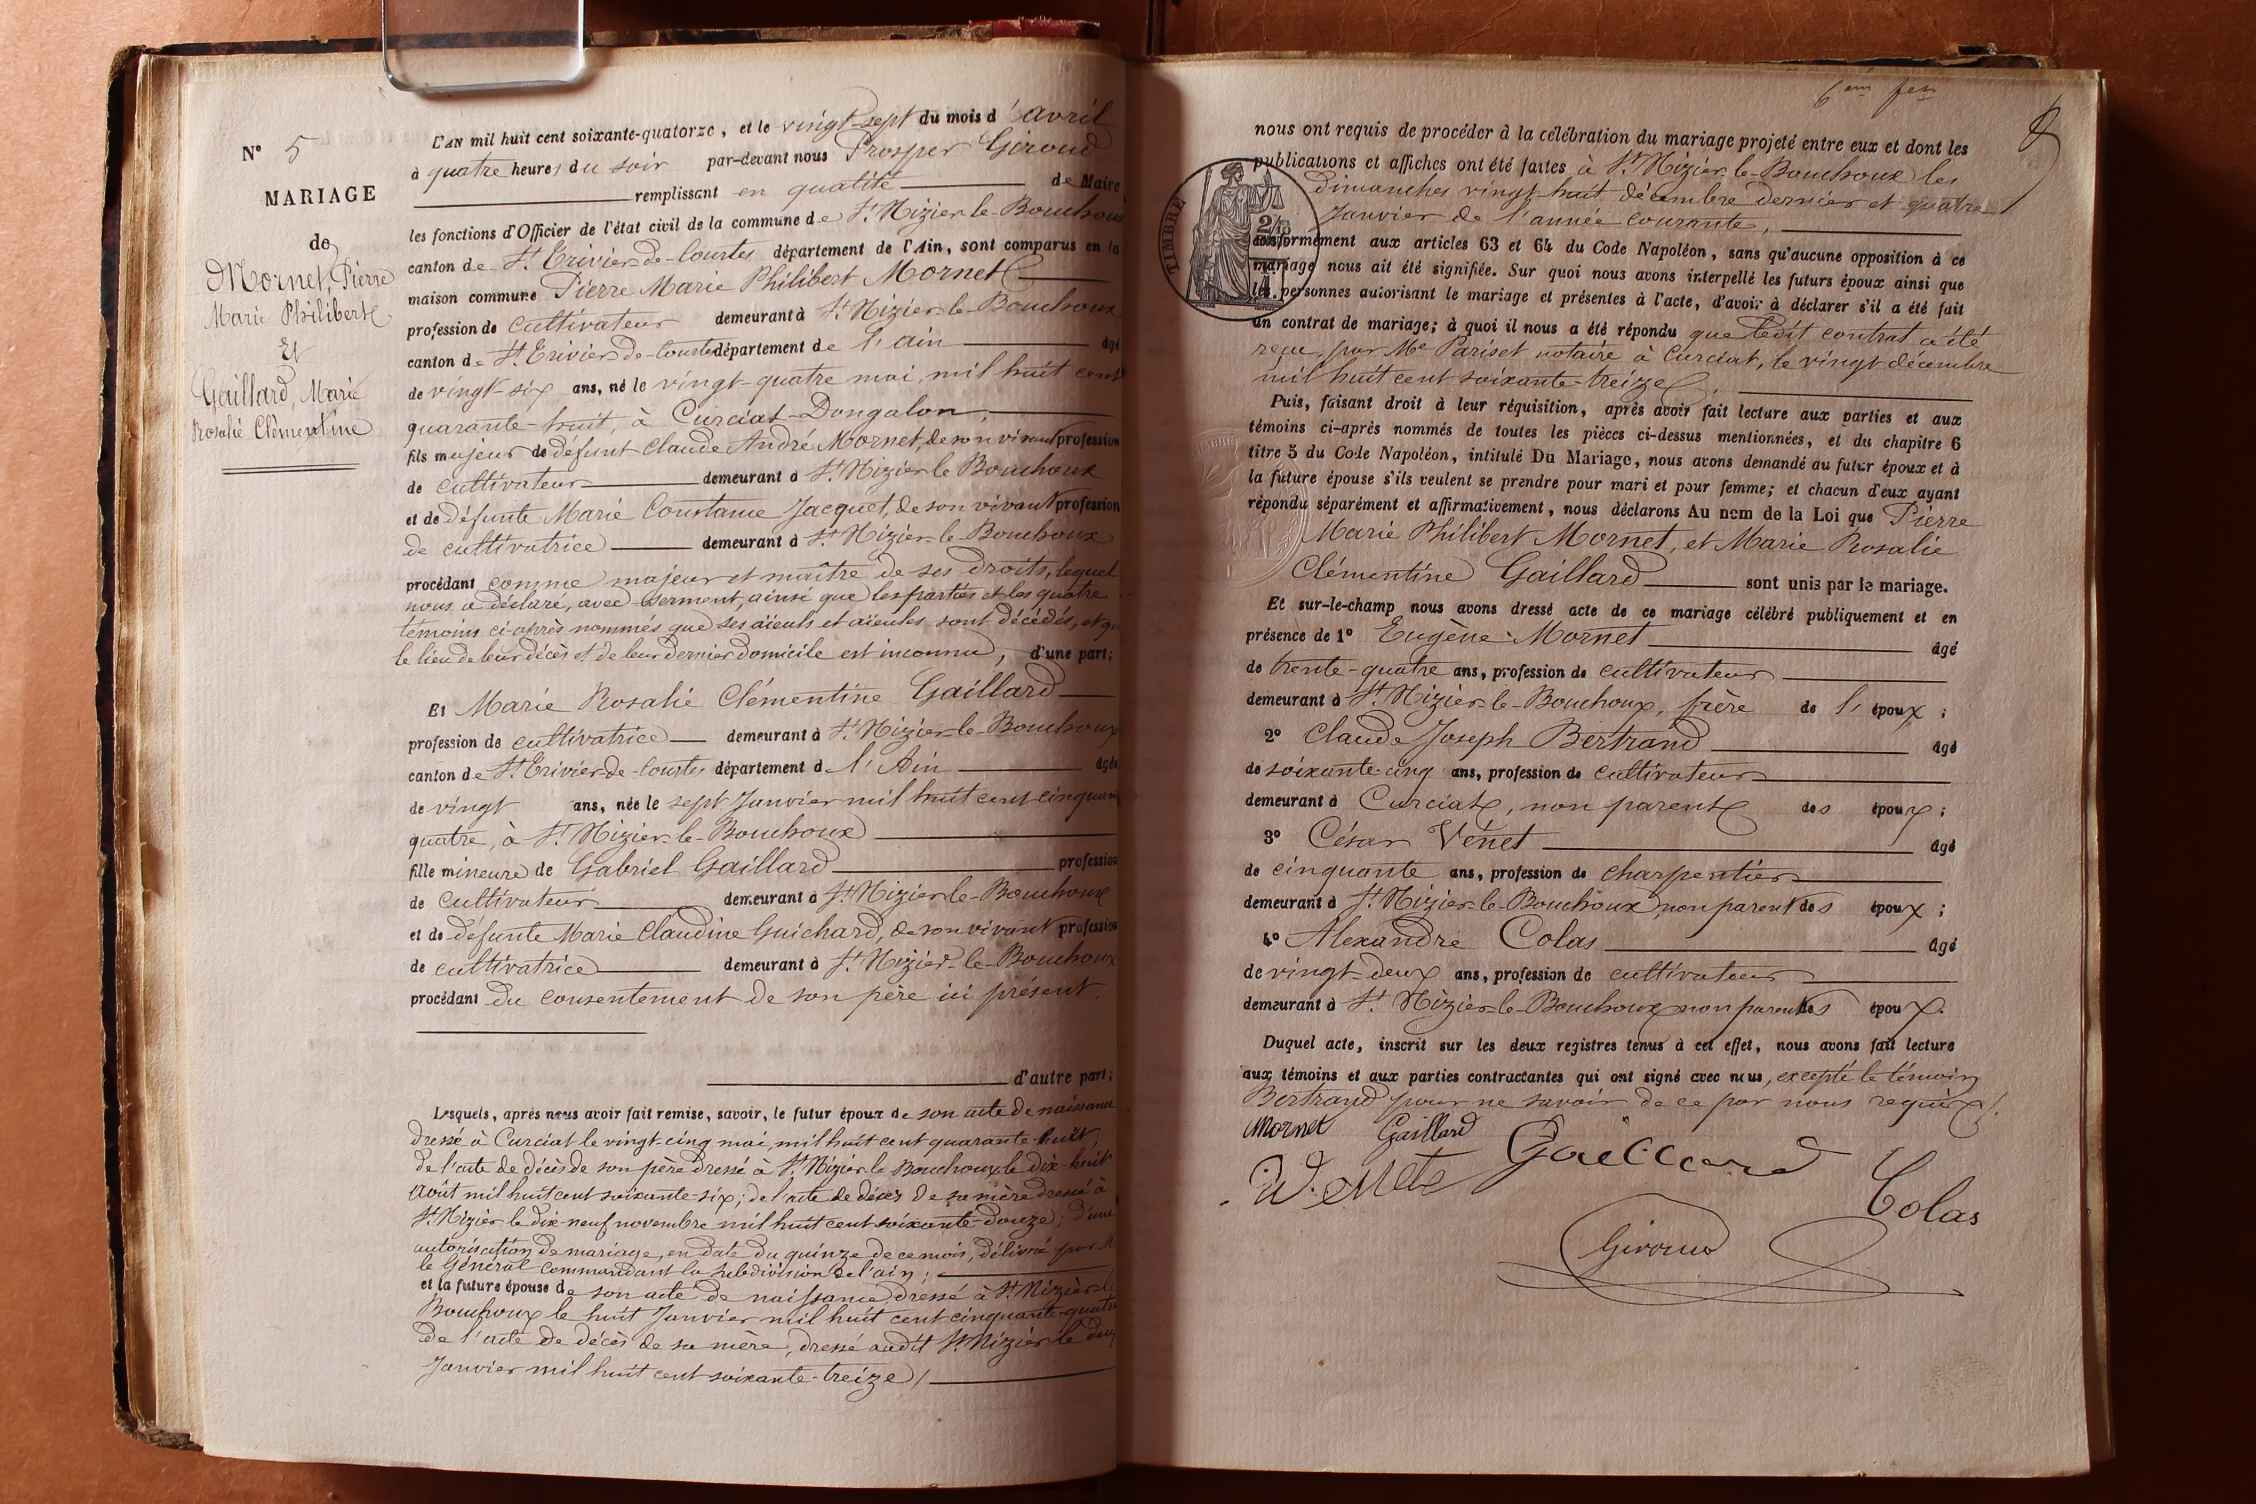 N° 5
MARIAGE
de
Mornet, Pierre
Marie Philibert
Et
Gaillard, Marie
Rosalie Clémentine
L'AN mil huit cent soixante-quatorze, et le vingt-sept du mois d'avril
à quatre heures du soir par-devant nous Prosper Giroud
remplissant en qualité de Maire
les fonctions d'Officier de l'état civil de la commune de St Nizier-le-Bouchoux
canton de St Trivier-de-Courtes département de l'Ain, sont comparus en la
maison commune Pierre Marie Philibert Mornet
profession de cultivateur demeurant à St Nizier-le-Bouchoux
canton de St Trivier-de-Courtes département de l'ain âgé
de vingt-six ans, né le vingt-quatre mai, mil huit cent
quarante-huit, à Curciat-Dongalon,
fils majeur de défunt Claude André Mornet, de son vivant profession
de cultivateur demeurant à St Nizier le Bouchoux
et de défunte Marie Constance Jacquet, de son vivant profession
de cultivatrice demeurant à St Nizier-le-Bouchoux
procédant comme majeur et maître de ses droits, lequel
nous a déclaré, avec serment, ainsi que les parties et les quatre
témoins ci-après nommés que ses aïeuls et aïeules sont décédés, et que
le lieu de leur décès et de leur dernier domicile est inconnu, d'une part;
Et Marie Rosalie Clémentine Gaillard
profession de cultivatrice demeurant à St Nizier-le-Bouchoux
canton de St Trivier-de-Courtes département d l'Ain âgée
de vingt ans, née le sept Janvier mil huit cent cinquante
quatre, à St Nizier-le-Bouchoux
fille mineure de Gabriel Gaillard profession
de cultivateur demeurant à St Nizier-le-Bouchoux
et de défunte Marie Claudine Guichard, de son vivant profession
de cultivatrice demeurant à St Nizier-le-Bouchoux
procédant du consentement de son père ici présent.
d'autre part;
Lesquels, après nous avoir fait remise, savoir, le futur époux de son acte de naissance
dressé à Curciat le vingt-cinq mai, mil huit cent quarante-huit,
de l'acte de décès de son père dressé à St Nizier le Bouchoux, le dix-huit
Août mil huit cent soixante-six; de l'acte de décès de sa mère dressé à
St Nizier le dix-neuf novembre mil huit cent soixante-douze; d'une
autorisation de mariage, en date du quinze de ce mois, délivrée par M
le Général commandant la subdivision de l'ain;
et la future épouse de son acte de naissance dressé à St Nizier-le
Bouchoux le huit Janvier mil huit cent cinquante-quatre
de l'acte de décès de sa mère, dressé audit St Nizier le deux
Janvier mil huit cent soixante-treize
nous ont requis de procéder à la célébration du mariage projeté entre eux et dont les
publications et affiches ont été faites à St Nizier-le-Bouchoux les
dimanches vingt-huit décembre dernier et quatre
Janvier de l'année courante,
TIMBRE
conformément aux articles 63 et 64 du Code Napoléon, sans qu'aucune opposition à ce
mariage nous ait été signifiée. Sur quoi nous avons interpellé les futurs époux ainsi que
les personnes autorisant le mariage et présentes à l'acte, d'avoir à déclarer s'il a été fait
un contrat de mariage; à quoi il nous a été répondu que ledit contrat a été
reçu, par Me Pariset notaire à Curciat, le vingt décembre
mil huit cent soixante-treize.
Puis, faisant droit à leur réquisition, après avoir fait lecture aux parties et aux
témoins ci-après nommés de toutes les pièces ci-dessus mentionnées, et du chapitre 6
titre 5 du Code Napoléon, intitulé Du Mariage, nous avons demandé au futur époux et à
la future épouse s'ils veulent se prendre pour mari et pour femme; et chacun d'eux ayant
répondu séparément et affirmativement, nous déclarons Au nom de la Loi que Pierre
Marie Philibert Mornet, et Marie Rosalie
Clémentine Gaillard sont unis par le mariage.
Et sur-le-champ nous avons dressé acte de ce mariage célébré publiquement et en
présence de 1° Eugène Mornet âgé
de trente-quatre ans, profession de cultivateur
demeurant à St Nizier-le-Bouchoux, frère de l'époux;
2° Claude Joseph Bertrand âgé
de soixante-cinq ans, profession de cultivateur
demeurant à Curciat, non parent des époux;
3° César Vénet âgé
de cinquante ans, profession de charpentier
demeurant à St Nizier-le-Bouchoux non parent des époux;
4° Alexandre Colas âgé
de vingt-deux ans, profession de cultivateur
demeurant à St Nizier-le-Bouchoux non parent des époux.
Duquel acte, inscrit sur les deux registres tenus à cet effet, nous avons fait lecture
aux témoins et aux parties contractantes qui ont signé avec nous, excepté le témoin
Bertrand pour ne savoir de ce par nous requis.
Mornet Gaillard
Gaillard
Colas
Giroud